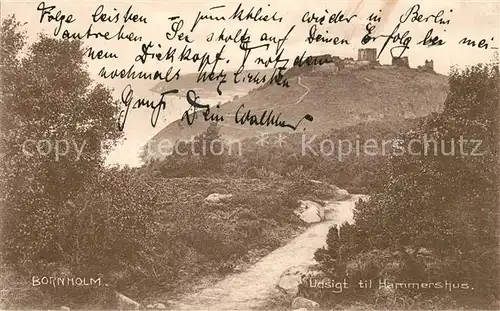 Folge leisten pünktlich wieder in Berlin
antreten. Sei stolz auf Deinen Erfolg bei mei-
nem Dickkopf. Trotzdem
nochmals herzlichsten
Gruß Dein Walther
copyright oldthing
Ansichtskarten
BORNHOLM.
Udsigt til Hammershus.